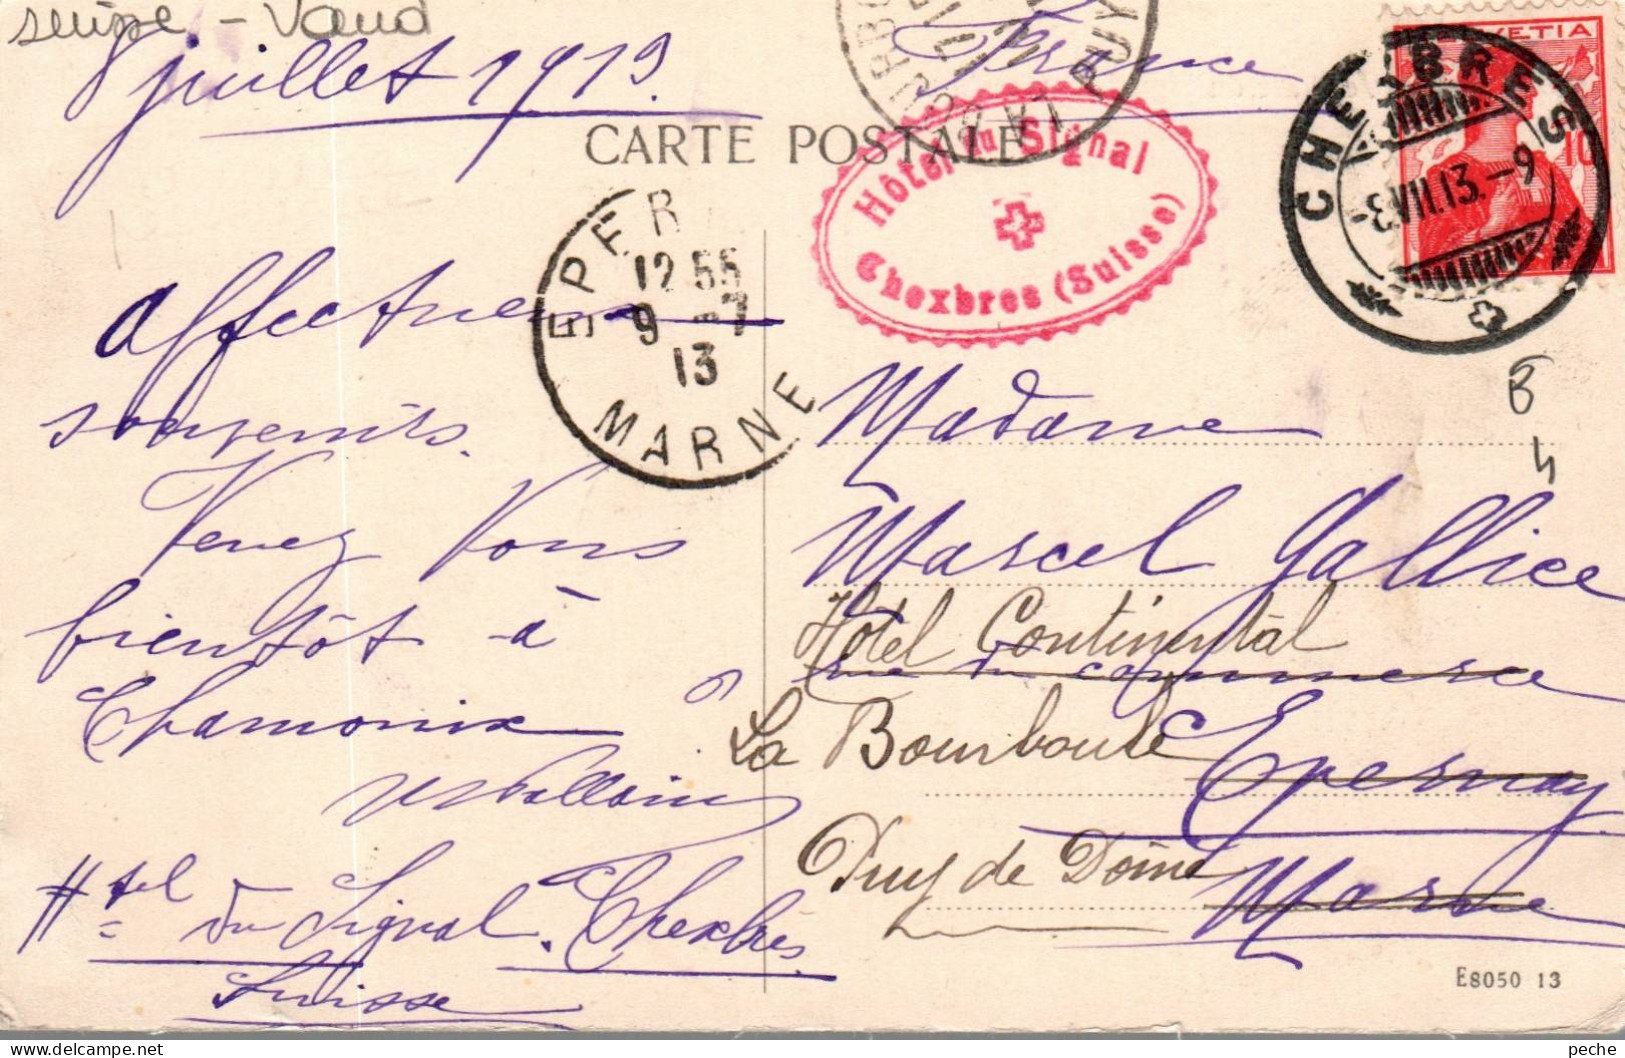 suisse - Vaud
8 juillet 1913
France
CARTE POSTALE
LA BOURBOULE PUY
Hôtel du Signal
Chexbres (Suisse)
HELVETIA
10
CHEXBRES
-8.VII.13.-9
EPERNAY
12 55
9 -7
13
MARNE
affectueux
souvenirs.
Venez Vous
bientôt à
Chamonix ?
Htel du Signal. Chexbres
Suisse
B
4
Madame
Marcel Gallice
Hôtel Continental
rue du commerce
La Bourboule
Epernay
Puy de Dôme
Marne
E8050 13
peche
delcampe.net